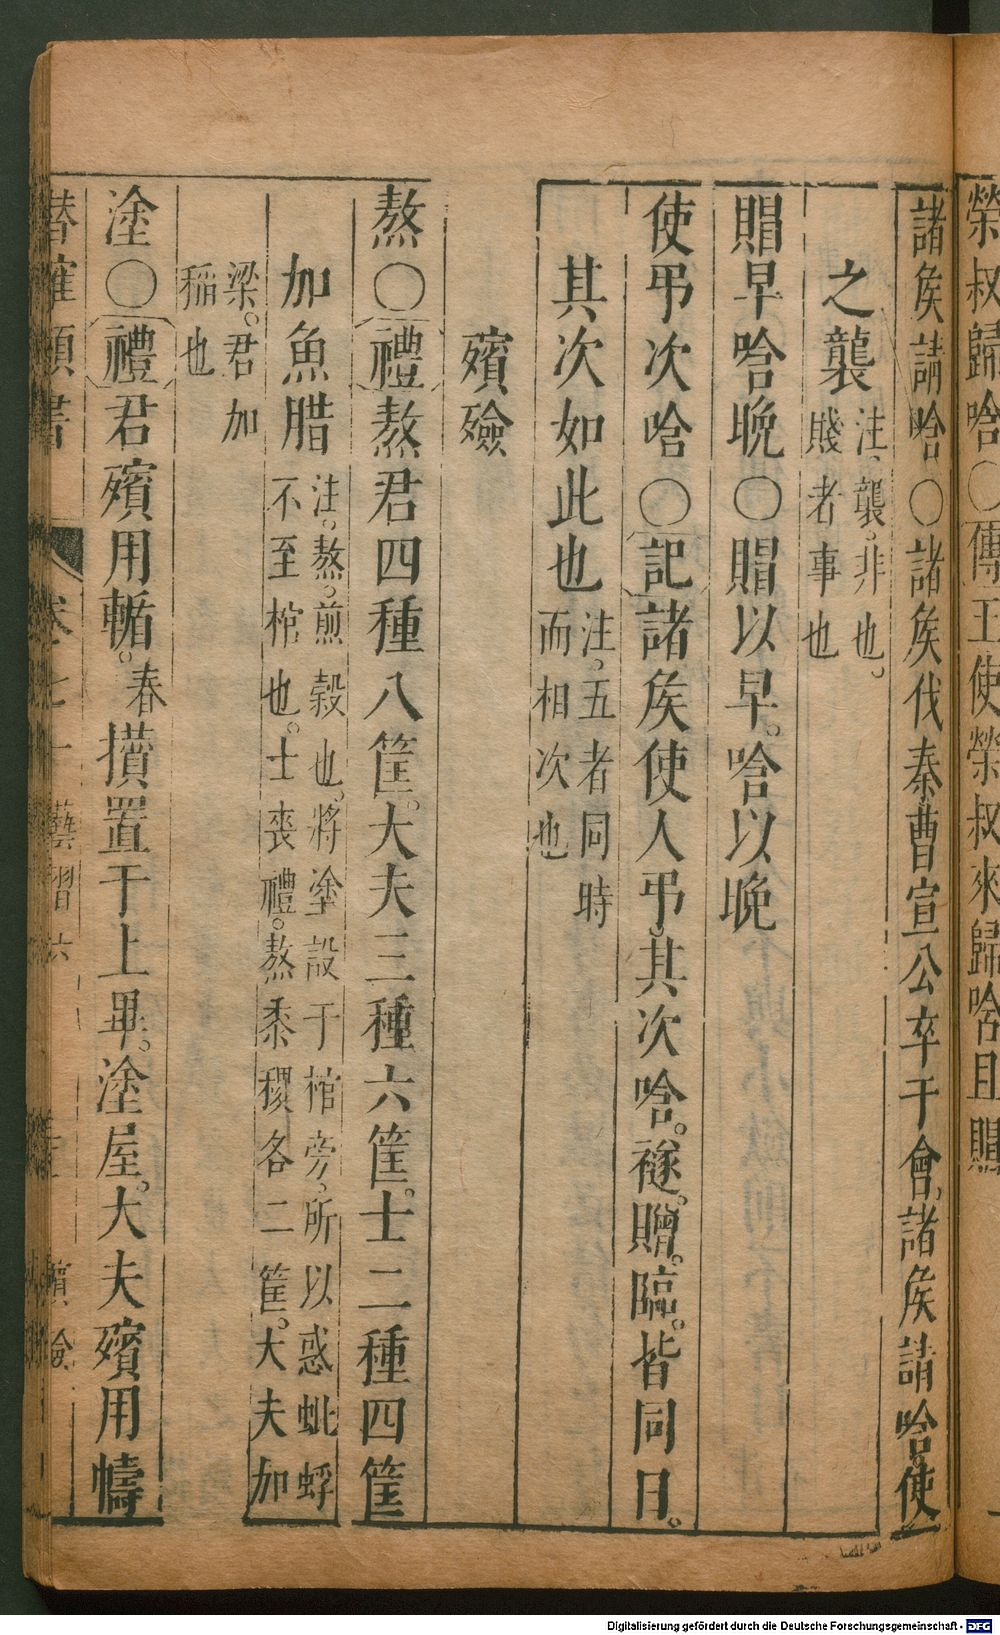 榮叔歸唅○傳王使榮叔來歸唅且賵
諸矦請唅○諸矦伐秦曹宣公卒于會諸矦請唅使
之襲注襲非也。
賤者事也
賵早唅晚○賵以早。唅以晚
使弔次唅○記諸矦使人弔其次唅。襚。赗。臨。皆同日。
其次如此也注五者同時
而相次也
殯殮
熬○禮熬君四種八筐。大夫三種六筐。士二種四筐
加魚腊注。熬煎穀也。將塗設于棺旁。所以惑蚍蜉
不至棺也。士喪禮。熬黍稷各二筐。大夫加
粱。君加
稲也
塗○禮君殯用輴。春攢置于上畢。塗屋。大夫殯用幬
卷七十
藝習六
殯殮
Digitalisierung gefördert durch die Deutsche Forschungsgemeinschaft - DFG